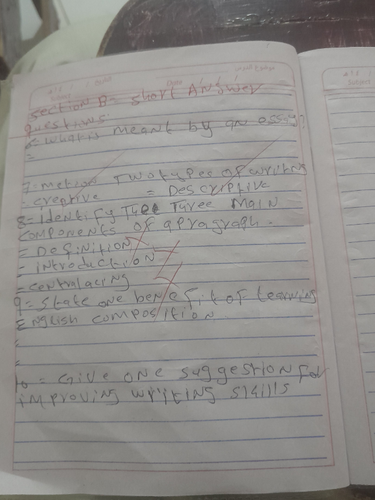 Section B = short Answer
questions.
6 = what is meant by an essay?
=
7 = metion Two types of writing
- creptive = Descriptive
8 = Identify Three Main
components of apragraph.
= Definition
= introduction
=
9 = State one benefit of learning
English composition
=
=
10 = Give one suggestion for
improving writing skills